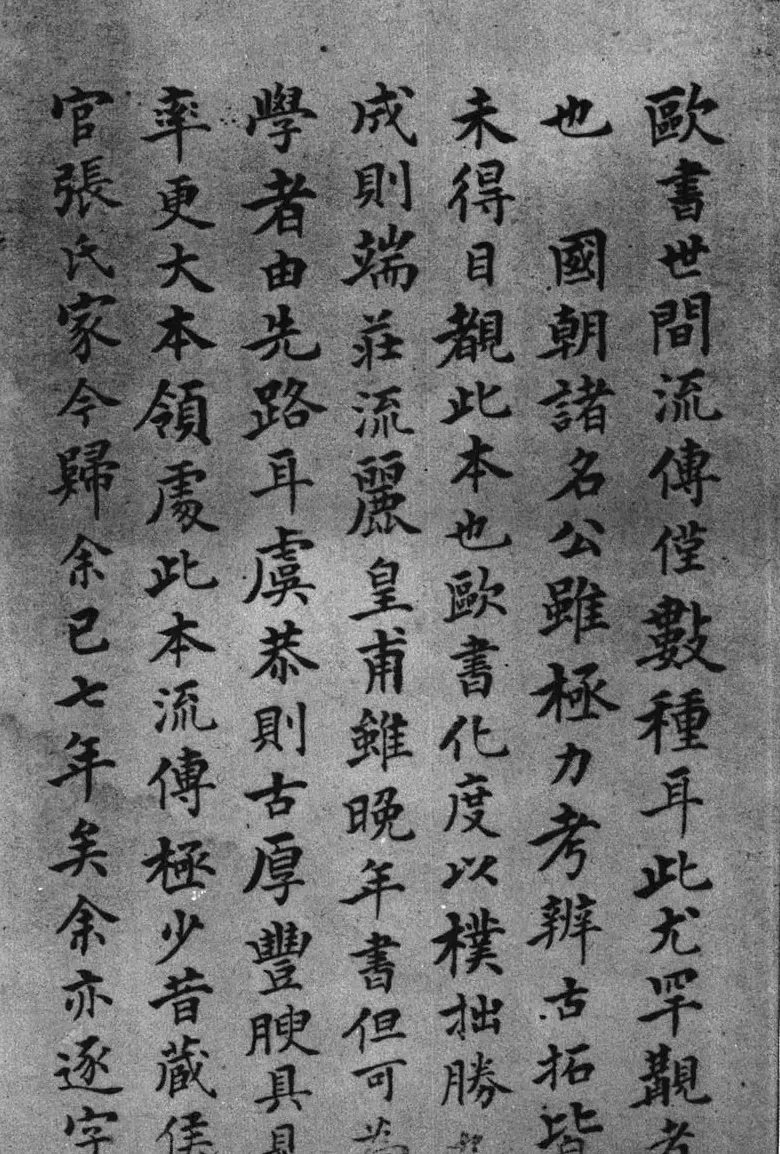 歐書世間流傳僅數種耳此尤罕覯者
也 國朝諸名公雖極力考辨古拓皆
未得目覩此本也歐書化度以樸拙勝
成則端莊流麗皇甫雖晚年書但可為
學者由先路耳虞恭則古厚豐腴具
率更大本領處此本流傳極少昔藏侯
官張氏家今歸余已七年矣余亦逐字